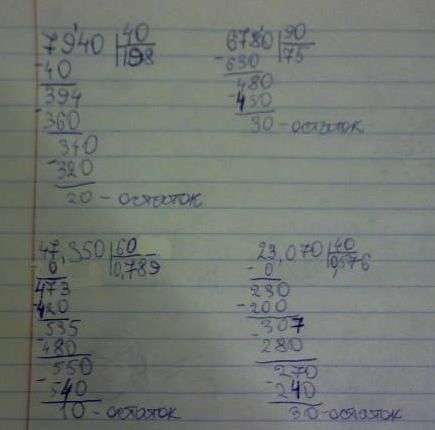 7940 | 40
-40 | 198
394
-360
340
-320
20 - остаток
6780 | 90
-630 | 75
480
-450
30 - остаток
47,350 | 60
-0 | 0,789
473
-420
535
-480
550
-540
10 - остаток
23,070 | 40
-0 | 0,576
230
-200
307
-280
270
-240
30 - остаток